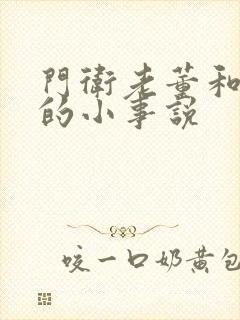 門衛老董和
的小事說
咬一口奶黃包